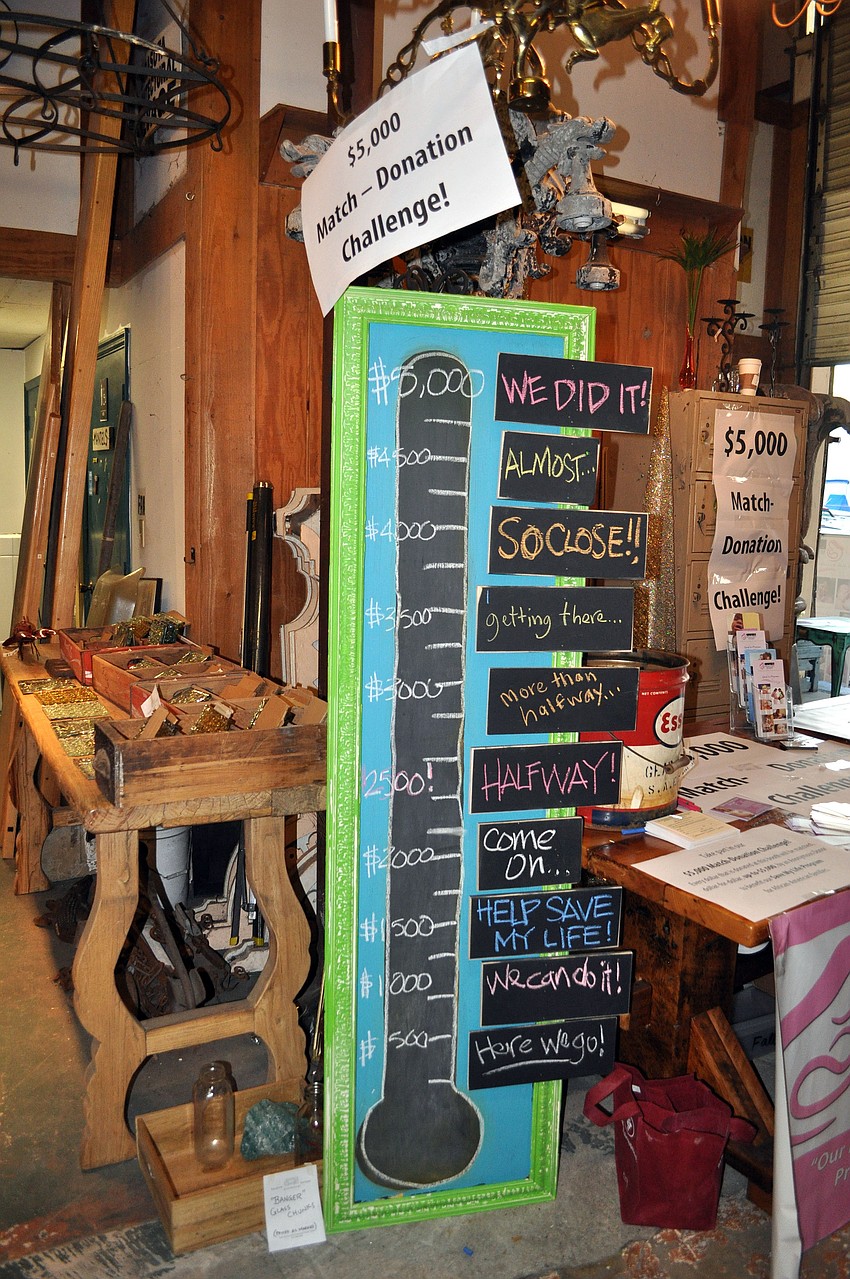 $5,000
Match – Donation
Challenge!
$5,000
WE DID IT!
$4500
ALMOST...
$4000
SO CLOSE!!
$3500
getting there...
$3000
more than
halfway...
2500!
HALFWAY!
$2000
COME
ON...
$1500
HELP SAVE
MY LIFE!
$1000
We can do it!
$500
Here we go!
$5,000
Match-
Donation
Challenge!
MANTELS
NET CONTENTS
Ess
Match-
Challenge
Take part in our
$5,000 Match Donation Challenge!
"BANGER"
GLASS CHUNKS
"Our